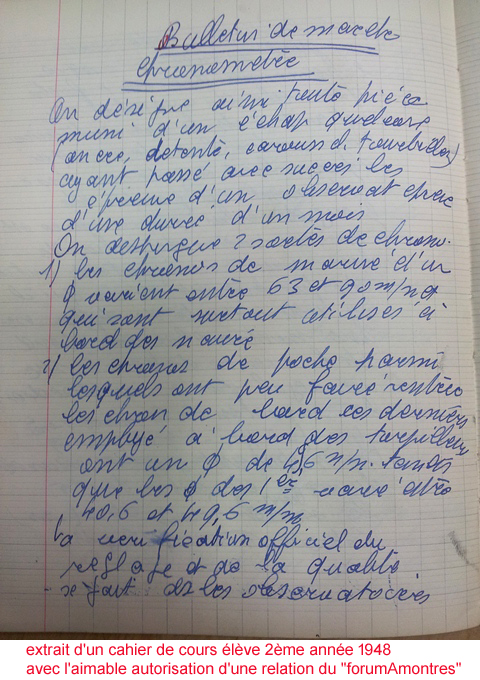 Bulletin de marche
chronomètre
On désigne ainsi toute pièce
muni d'un échap quelconque
(ancre, détente, carousel, tourbillon)
ayant passé avec succès les
épreuve d'un observatoire
d'une durée d'un mois
On distingue 2 sortes de chrono.
1) les chronos de marine d'un
φ varient entre 63 et 90 m/m
qui sont surtout utilisés à
bord des navire
2) les chronos de poche parmi
lesquels ont peu faire rentrée
les chron de bord ces derniers
employé a bord des torpilleurs
ont un φ de m/m. tandis
que les φ des 1er varie entre
40,6 et 49,6 m/m
la vérification officiel du
réglage et de la qualité
se fait ds les observatoires
extrait d'un cahier de cours élève 2ème année 1948
avec l'aimable autorisation d'une relation du "forumAmontres"